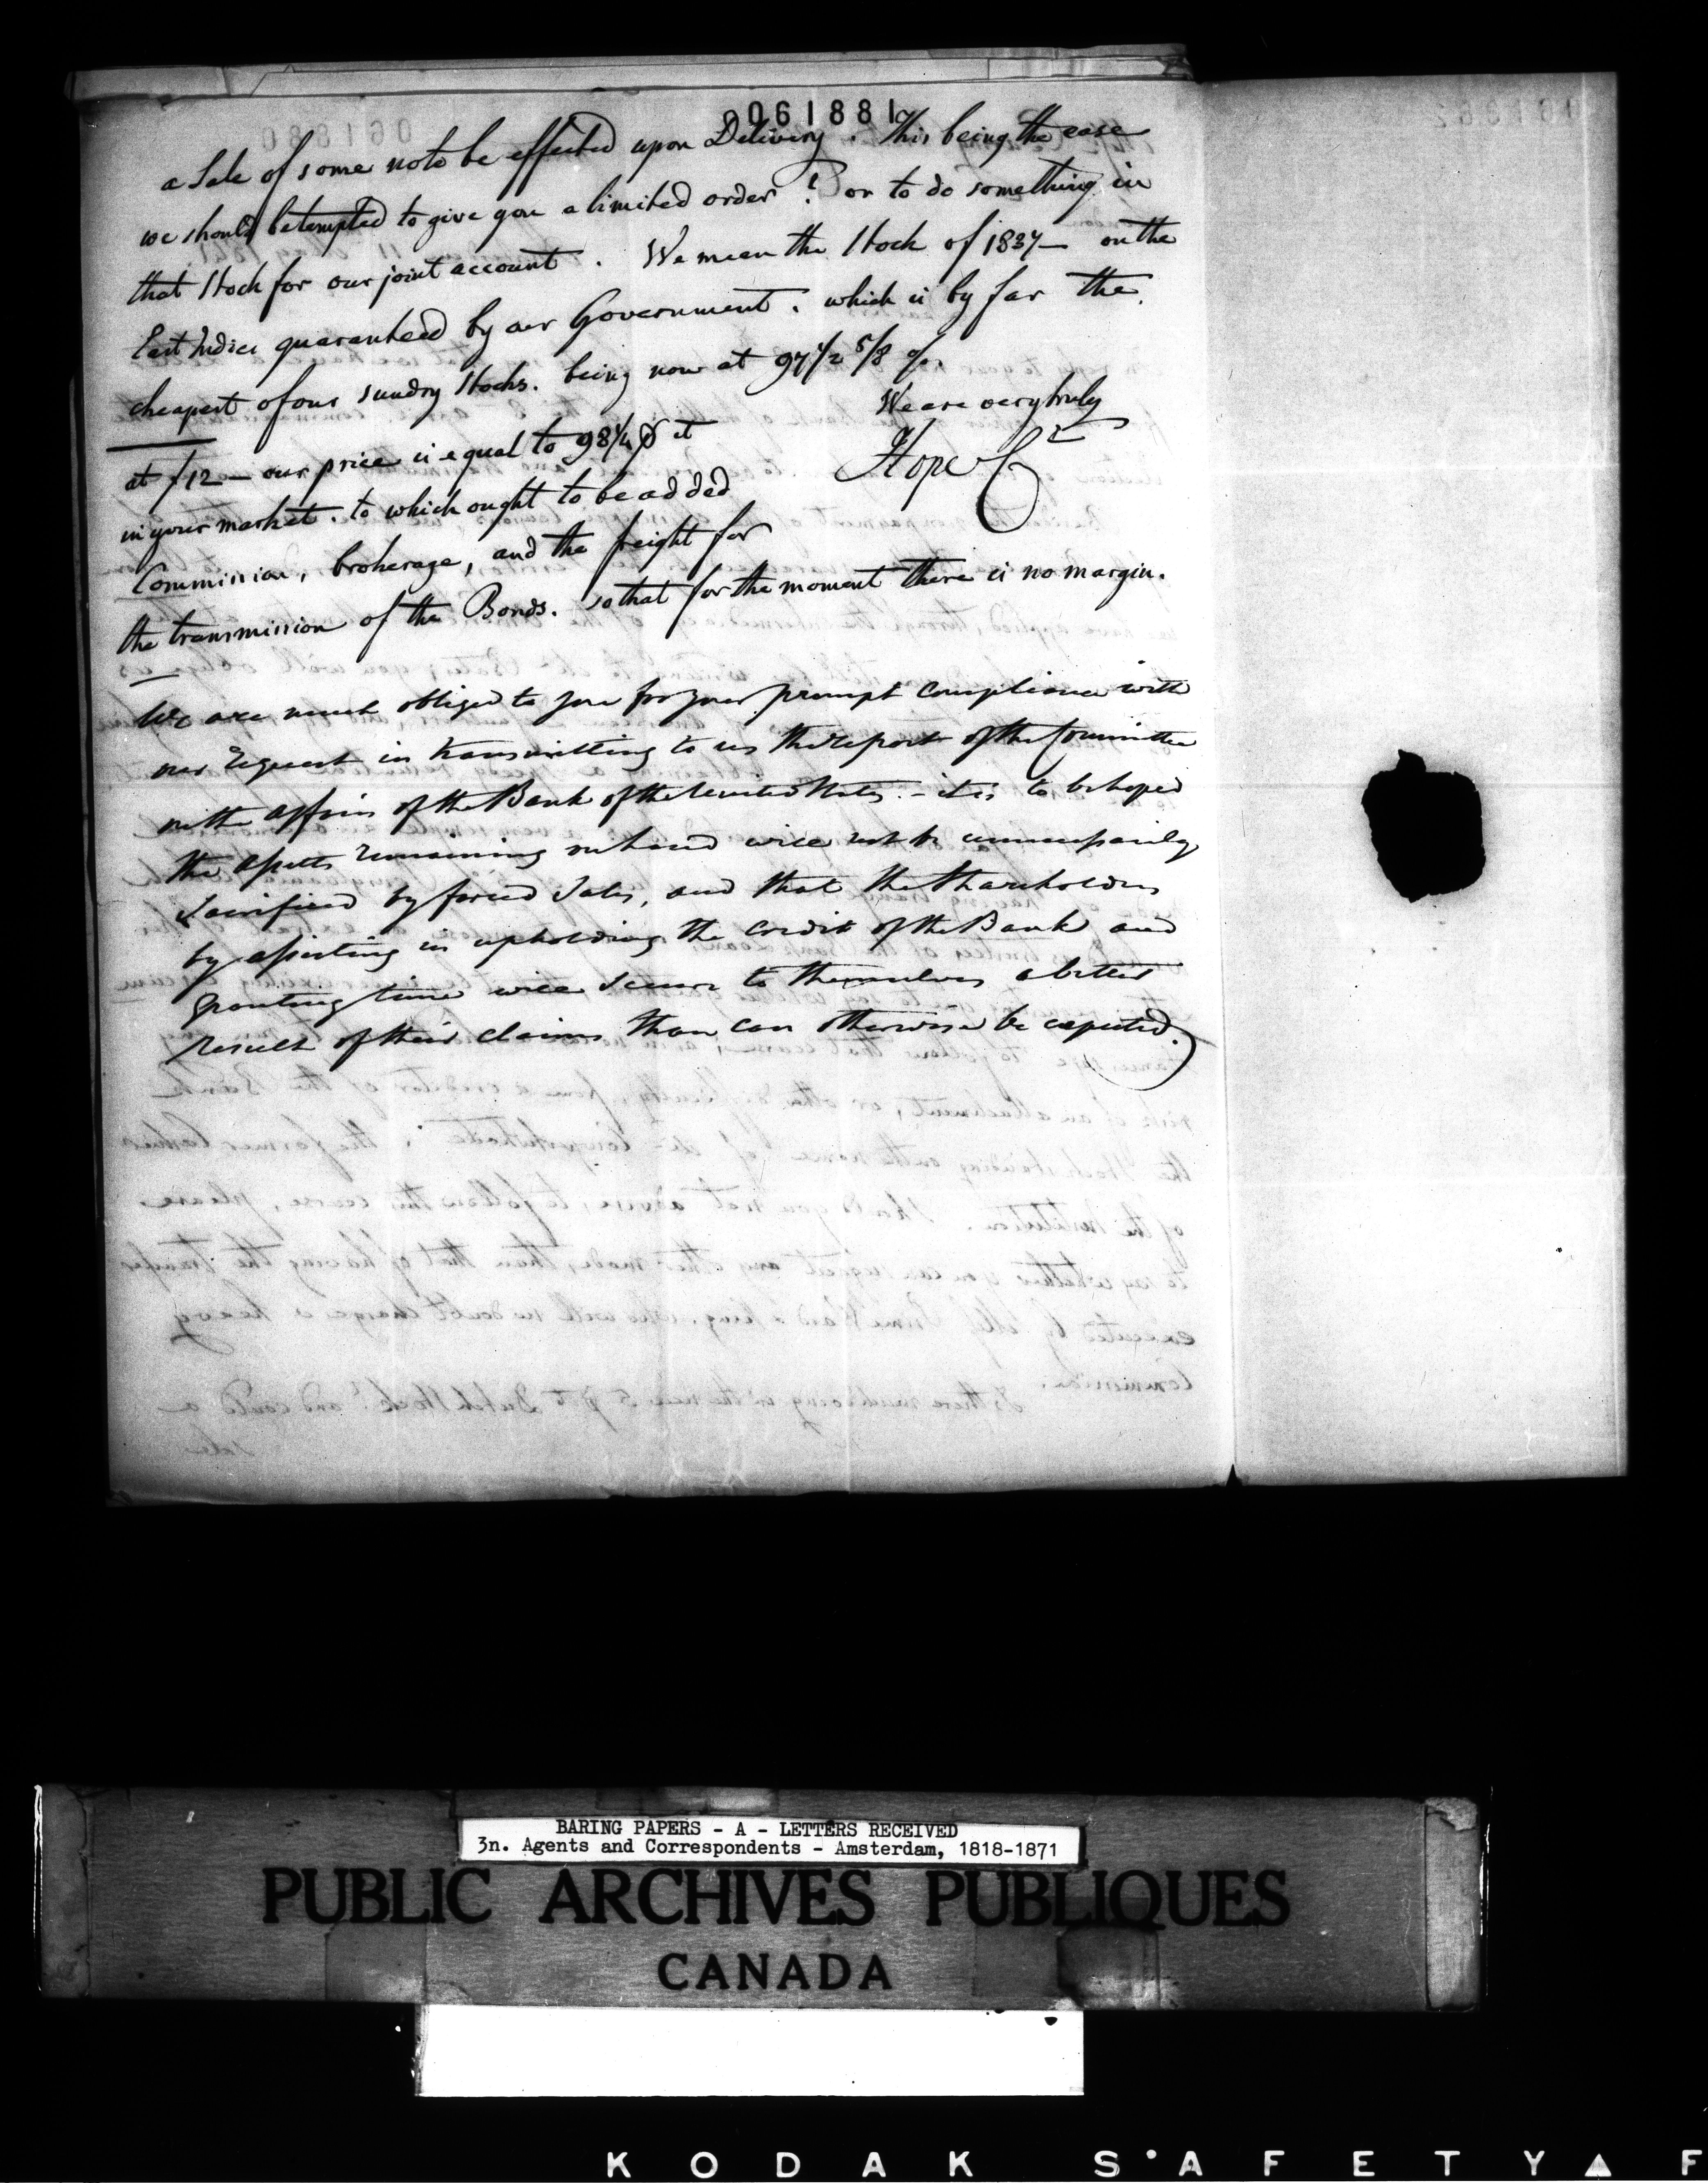 061881
a Sale of some note be effected upon Delivery. This being the case
we should be tempted to give you a limited order? or to do something in
that Stock for our joint account. We mean the Stock of 1837 — on the
East Indies guaranteed by our Government. which is by far the
cheapest of our sundry Stocks. being now at 97 1/2 5/8 %.
We are very truly
Hope &
at f 12 — our price is equal to 98 1/4 it
in your market. to which ought to be added
Commission, brokerage, and the freight for
the transmission of the Bonds. so that for the moment there is no margin.
We are much obliged to you for your prompt compliance with
our request in transmitting to us the report of the Committee
on the affairs of the Bank of the United States. — it is to be hoped
the assets remaining on hand will not be unnecessarily
sacrificed by forced Sales, and that the Shareholders
by assisting in upholding the credit of the Bank and
granting time will secure to themselves a better
result of their claims than can otherwise be expected.
BARING PAPERS - A - LETTERS RECEIVED
3n. Agents and Correspondents - Amsterdam, 1818-1871
PUBLIC ARCHIVES PUBLIQUES
CANADA
KODAK SAFETY F